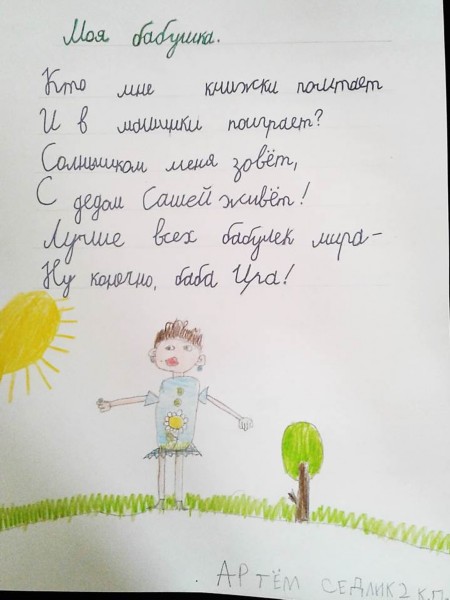 Моя бабушка.
Кто мне книжки почитает
И в машинки поиграет?
Солнышком меня зовёт,
С дедом Сашей живёт!
Лучше всех бабулек мира-
Ну конечно, баба Ира!
АРТЁМ СЕДЛИК 2 К.П.